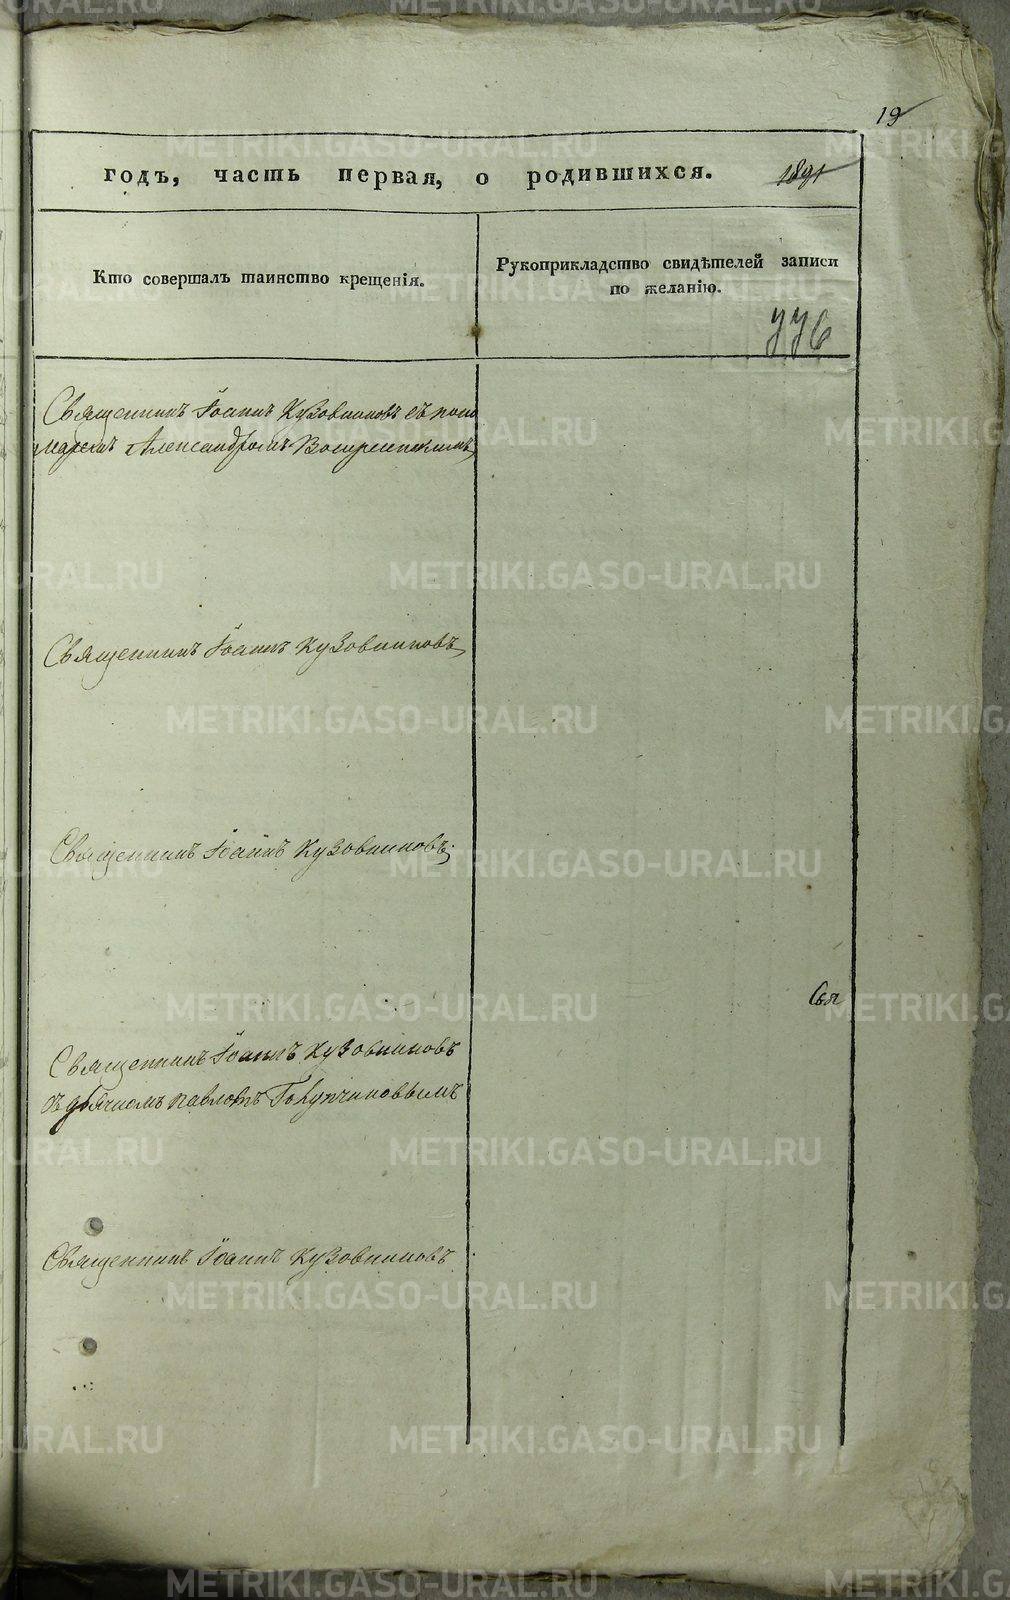 19
годъ, часть первая, о родившихся. 1891
Кто совершалъ таинство крещенія.
Рукоприкладство свидѣтелей записи
по желанію.
Священникъ Іоаннъ Кузовниковъ съ поно
маремъ Александромъ Воскресенскимъ
Священникъ Іоаннъ Кузовниковъ
Священникъ Іоаннъ Кузовниковъ
Свя
Священникъ Іоаннъ Кузовниковъ
съ дьячкомъ Павломъ
Священникъ Іоаннъ Кузовниковъ
METRIKI.GASO-URAL.RU